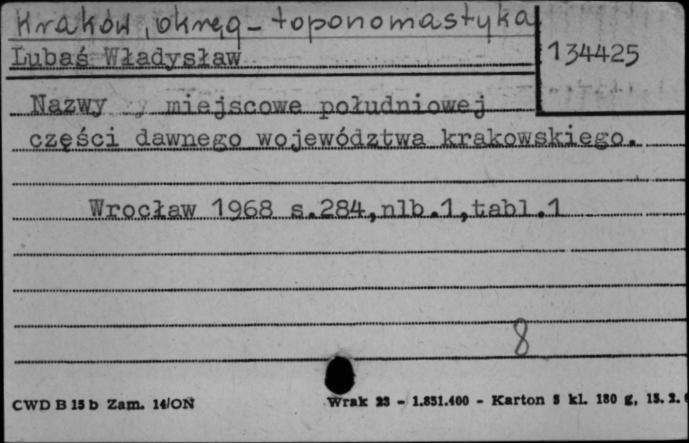 Kraków, okręg - toponomastyka
134425
Lubaś Władysław
Nazwy miejscowe południowej
części dawnego województwa krakowskiego.
Wrocław 1968 s.284,nlb.1,tabl.1
8
CWD B 15 b Zam. 14/ON
Wrak 23 - 1.851.400 - Karton 8 kl. 180 g, 15. 2.